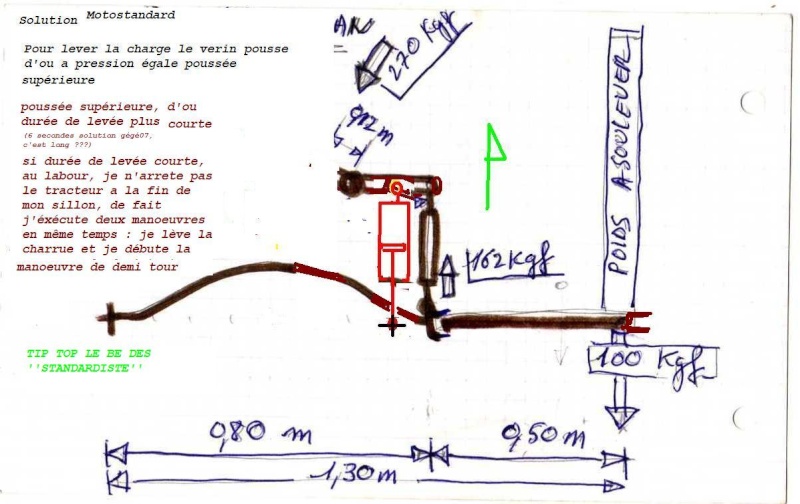 Solution Motostandard
Pour lever la charge le verin pousse
d'ou a pression égale poussée
supérieure
poussée supérieure, d'ou
durée de levée plus courte
(6 secondes solution gégé07,
c'est long ???)
si durée de levée courte,
au labour, je n'arrete pas
le tracteur a la fin de
mon sillon, de fait
j'éxécute deux manoeuvres
en même temps : je lève la
charrue et je débute la
manoeuvre de demi tour
TIP TOP LE BE DES
''STANDARDISTE''
270 Kgf
0,12 m
162 Kgf
POIDS A SOULEVER
100 Kgf
0,80 m
0,50 m
1,30 m